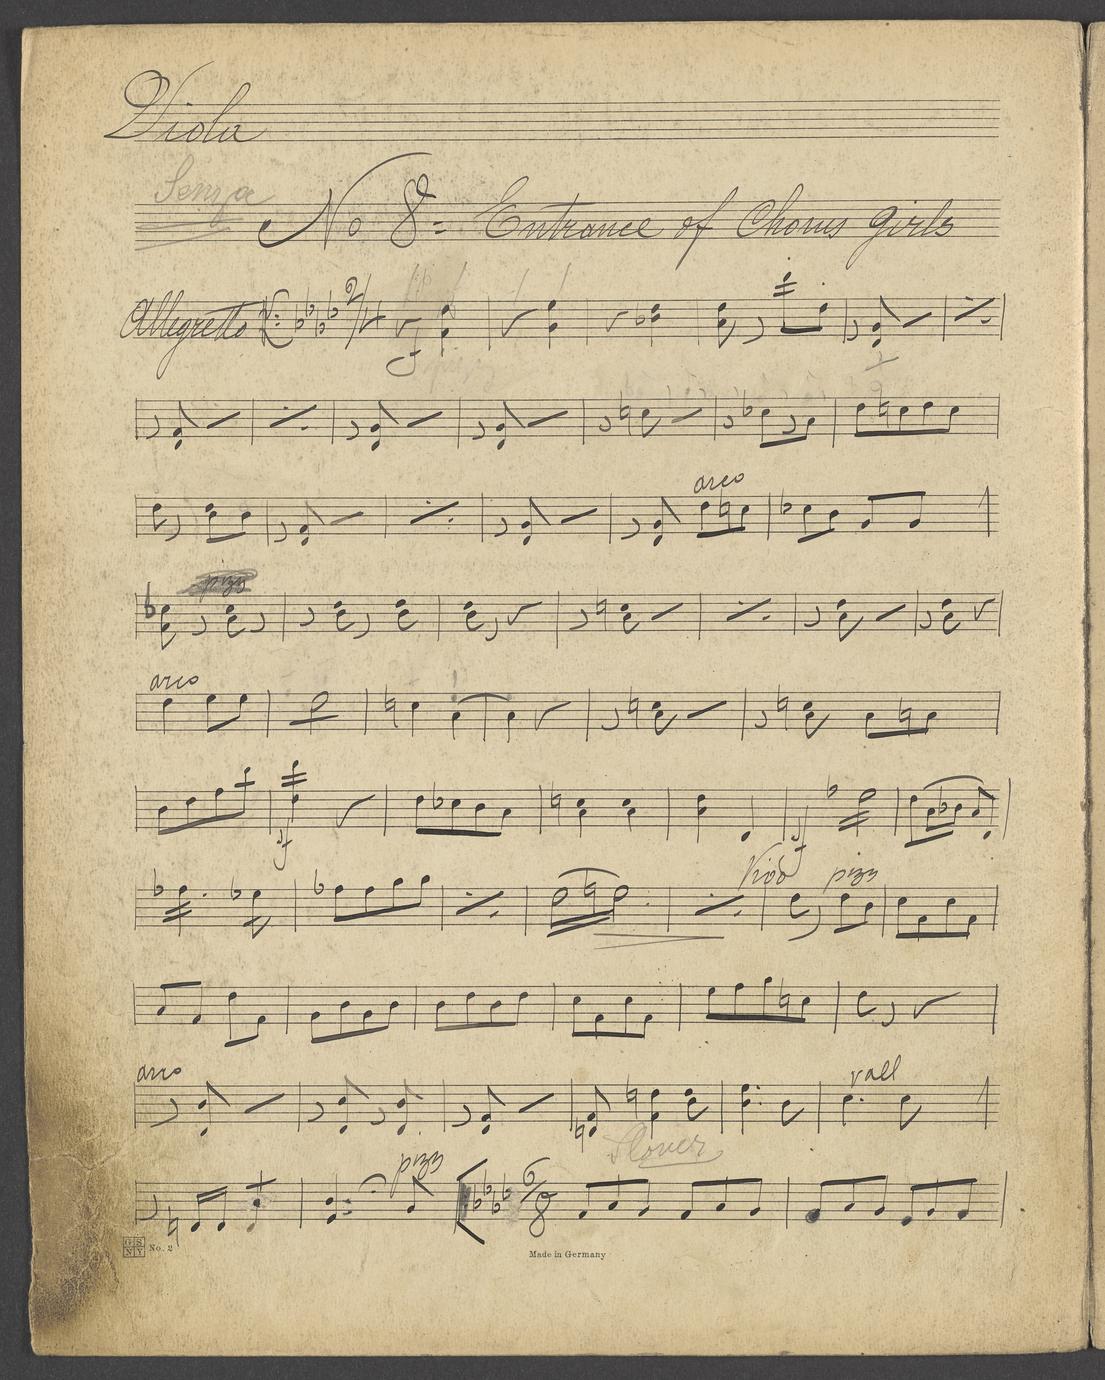 Viola
Senza
No 8 = Entrance of Chorus Girls
Allegretto 2/4
f
arco
pizz
arco
f
f
Vivo pizz
arco rall
Slower
pizz
6/8
G S N Y No. 2 Made in Germany